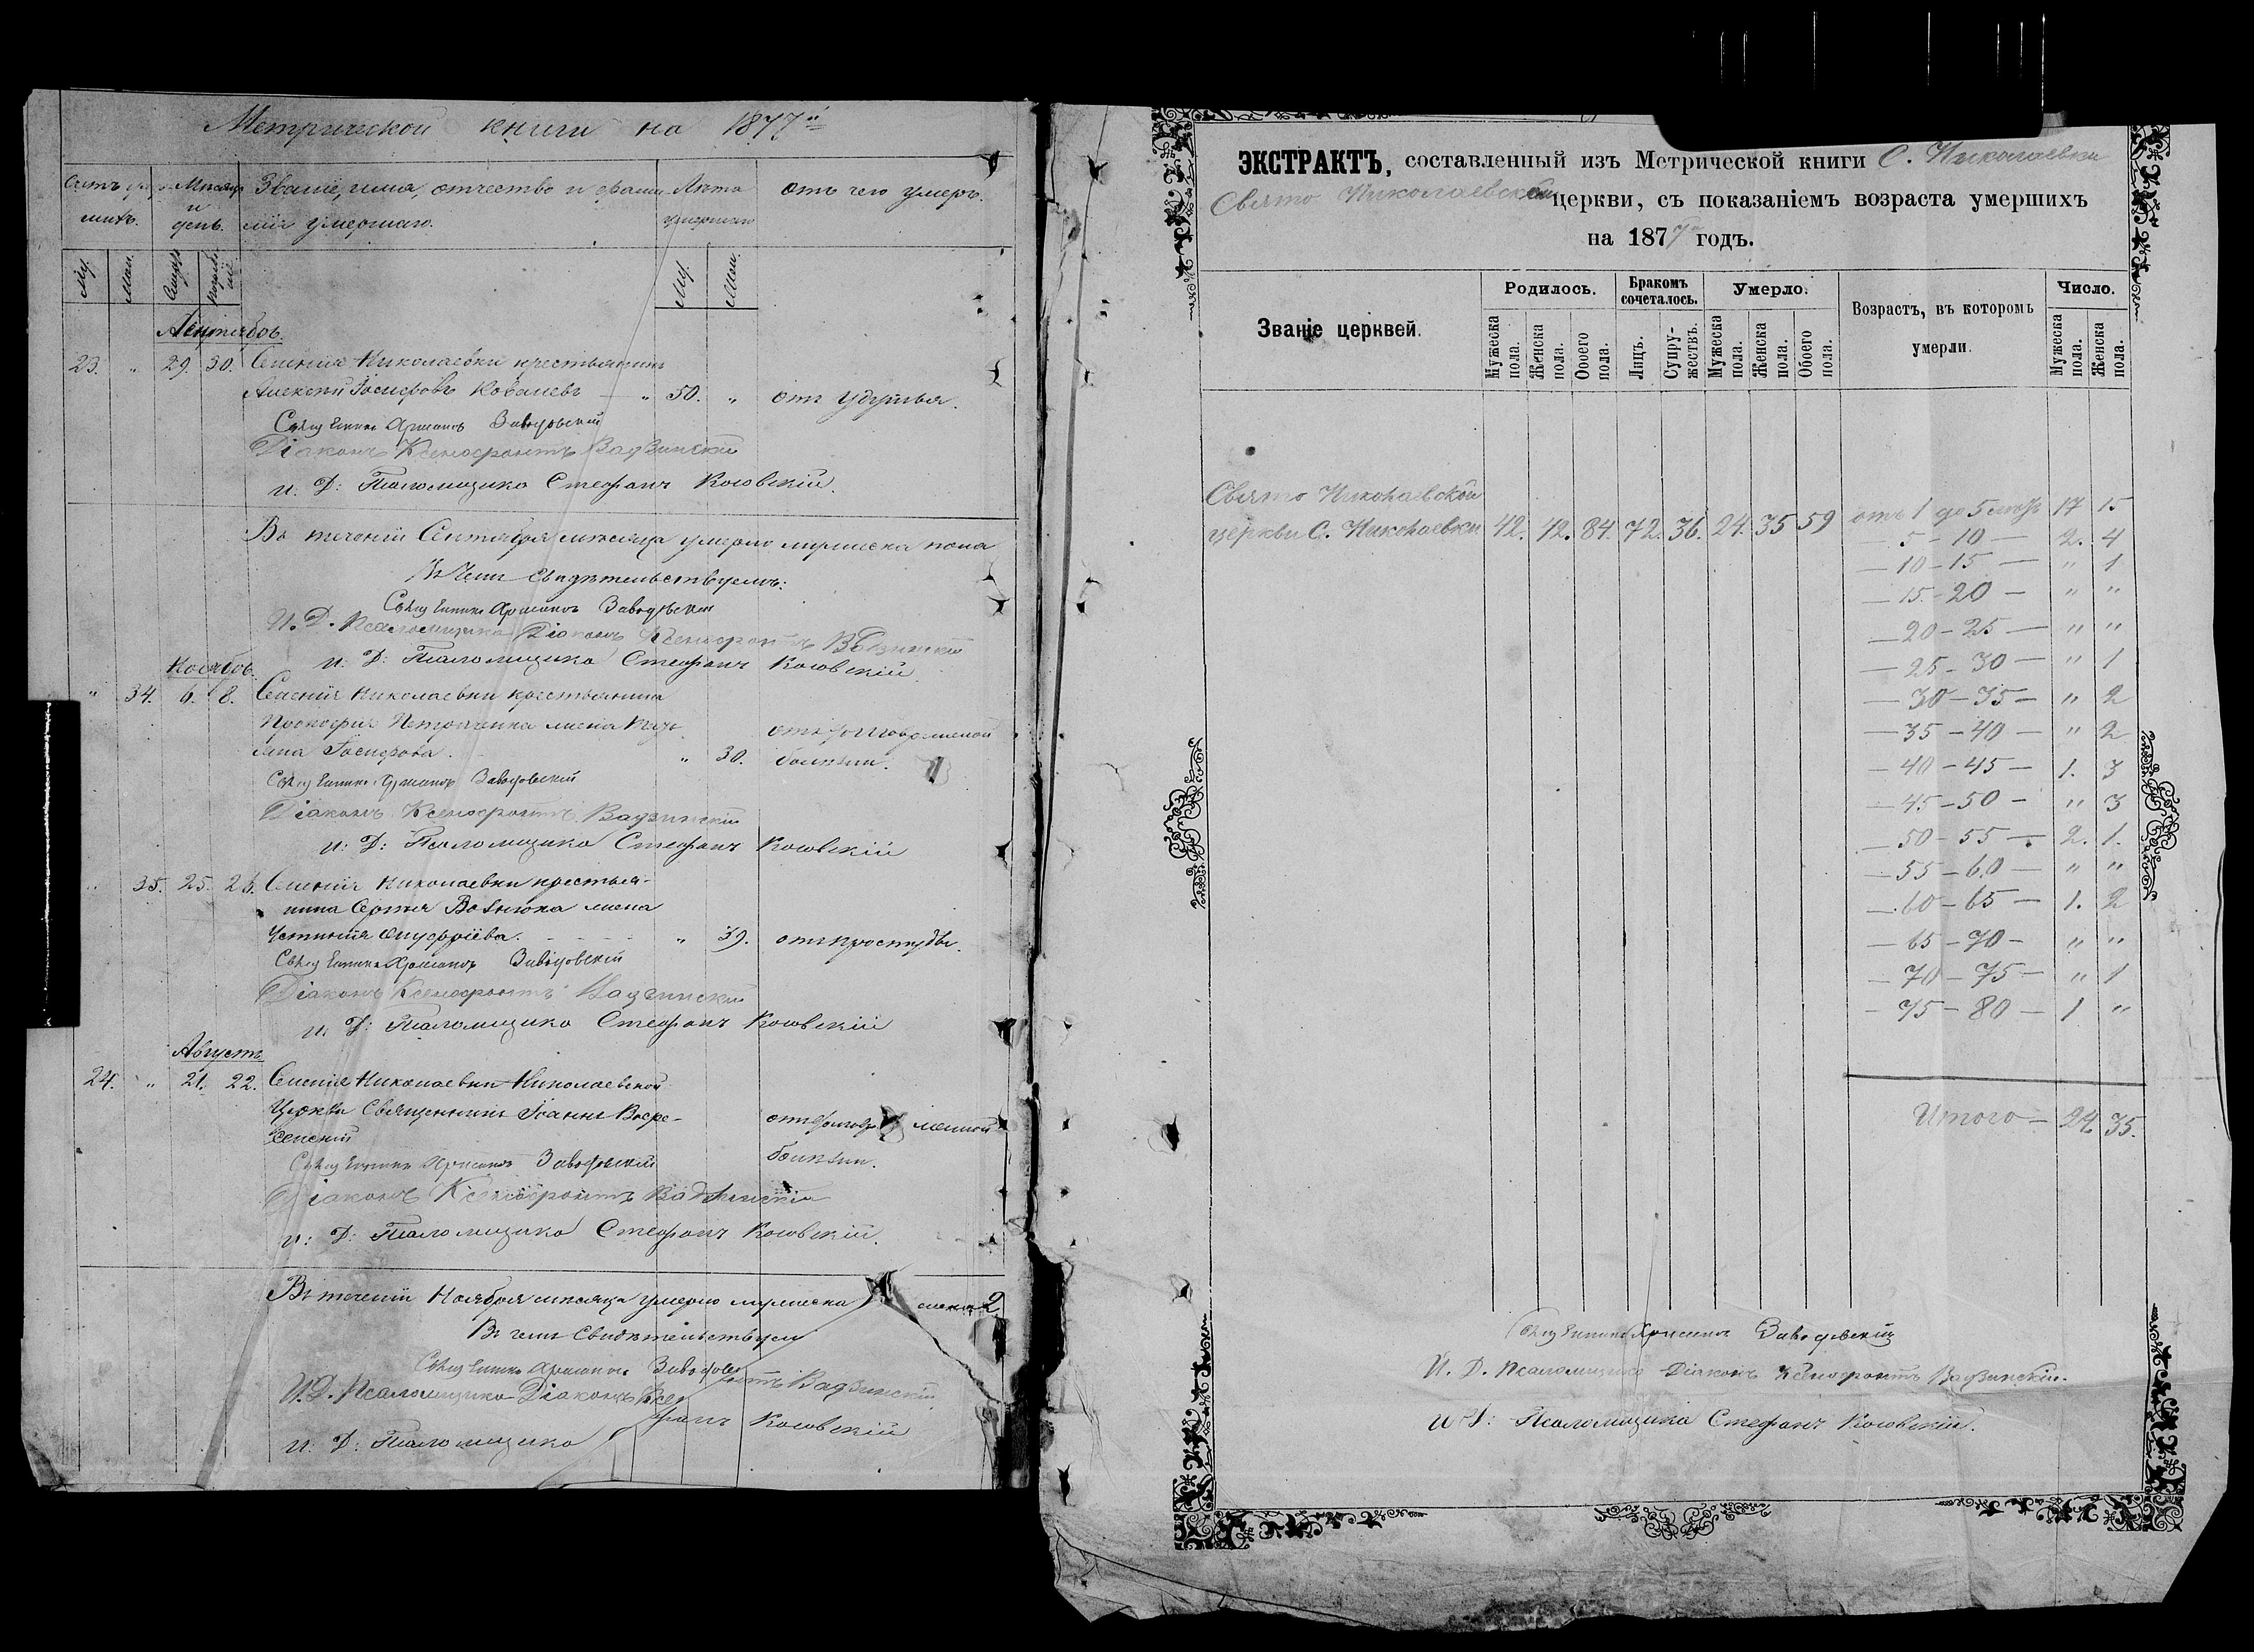 Метрической книги на 1877й
Счетъ умершихъ.
Месяцъ и день.
Званіе, имя, отчество и фамилія умершаго.
Лѣта умершаго
отъ чего умеръ.
Му. Жен. Му. Жен.
Сентябрь.
23. " 29. 30. Селенія Николаевки крестьянинъ
Алексѣй Іосифовъ Ковалевъ " 50. " отъ удушья.
Заводовскій
Діаконъ Ксенофонтъ Вадзинскій
И. Д: Псаломщика Стефанъ Косовскій.
Въ теченіи Сентября мѣсяца умерло мужеска пола
В чемъ свидѣтельствуемъ:
Заводовскій
И. Д. Псаломщика Діаконъ Ксенофонтъ Вадзинскій
И: Д: Псаломщика Стефанъ Косовскій.
Ноябрь.
" 34. 6. 8. Селенія Николаевки крестьянина
Прокофія жена
Іосифова. " 30. отъ долговременной болѣзни.
Заводовскій
Діаконъ Ксенофонтъ Вадзинскій
И: Д: Псаломщика Стефанъ Косовскій
" 35. 25. 26. Селенія Николаевки крестья-
нина Сергѣя жена
Устинія Онуфріева. " 39. отъ простуды.
Заводовскій
Діаконъ Ксенофонтъ Вадзинскій
И. Д: Псаломщика Стефанъ Косовскій
Августъ
24. " 21. 22. Селенія Николаевки Николаевской
Церкви Священникъ Іоаннъ отъ долговременной
болѣзни.
Заводовскій
Діаконъ Ксенофонтъ Вадзинскій
И: Д: Псаломщика Стефанъ Косовскій.
Въ теченіи Ноября мѣсяца умерло мужеска женска 2
В чемъ свидѣтельствуем
И. Д. Псаломщика Діаконъ Ксе нтъ Вадзинскій
И: Д: Псаломщика фанъ Косовскій
ЭКСТРАКТЪ, составленный изъ Метрической книги С. Николаевки
Свято Николаевской церкви, съ показаніемъ возраста умершихъ
на 1877й годъ.
Званіе церквей.
Родилось.
Бракомъ сочеталось.
Умерло.
Возрастъ, въ которомъ умерли.
Число.
Мужеска пола. Женска пола. Обоего пола. Лицъ. Супружествъ. Мужеска пола. Женска пола. Обоего пола. Мужеска пола. Женска пола.
Свято Николаевской
церкви С. Николаевки 42. 42. 84. 72. 36. 24. 35 59
отъ 1 до 5 лѣтъ 17 15
— 5 - 10 — 2. 4
— 10 - 15 — " 1
— 15 - 20 — " "
— 20 - 25 — " "
— 25 - 30 — " 1
— 30 - 35 — " 2
— 35 - 40 — " 2
— 40 - 45 — 1. 3
— 45 - 50 — " 3
— 50 - 55 — 2. 1.
— 55 - 60 — " "
— 60 - 65 — 1. 2
— 65 - 70 — " "
— 70 - 75 — " 1
— 75 - 80 — 1 "
Итого — 24. 35.
Заводовскій
И. Д. Псаломщика Діаконъ Ксенофонтъ Вадзинскій.
И Д: Псаломщика Стефанъ Косовскій.